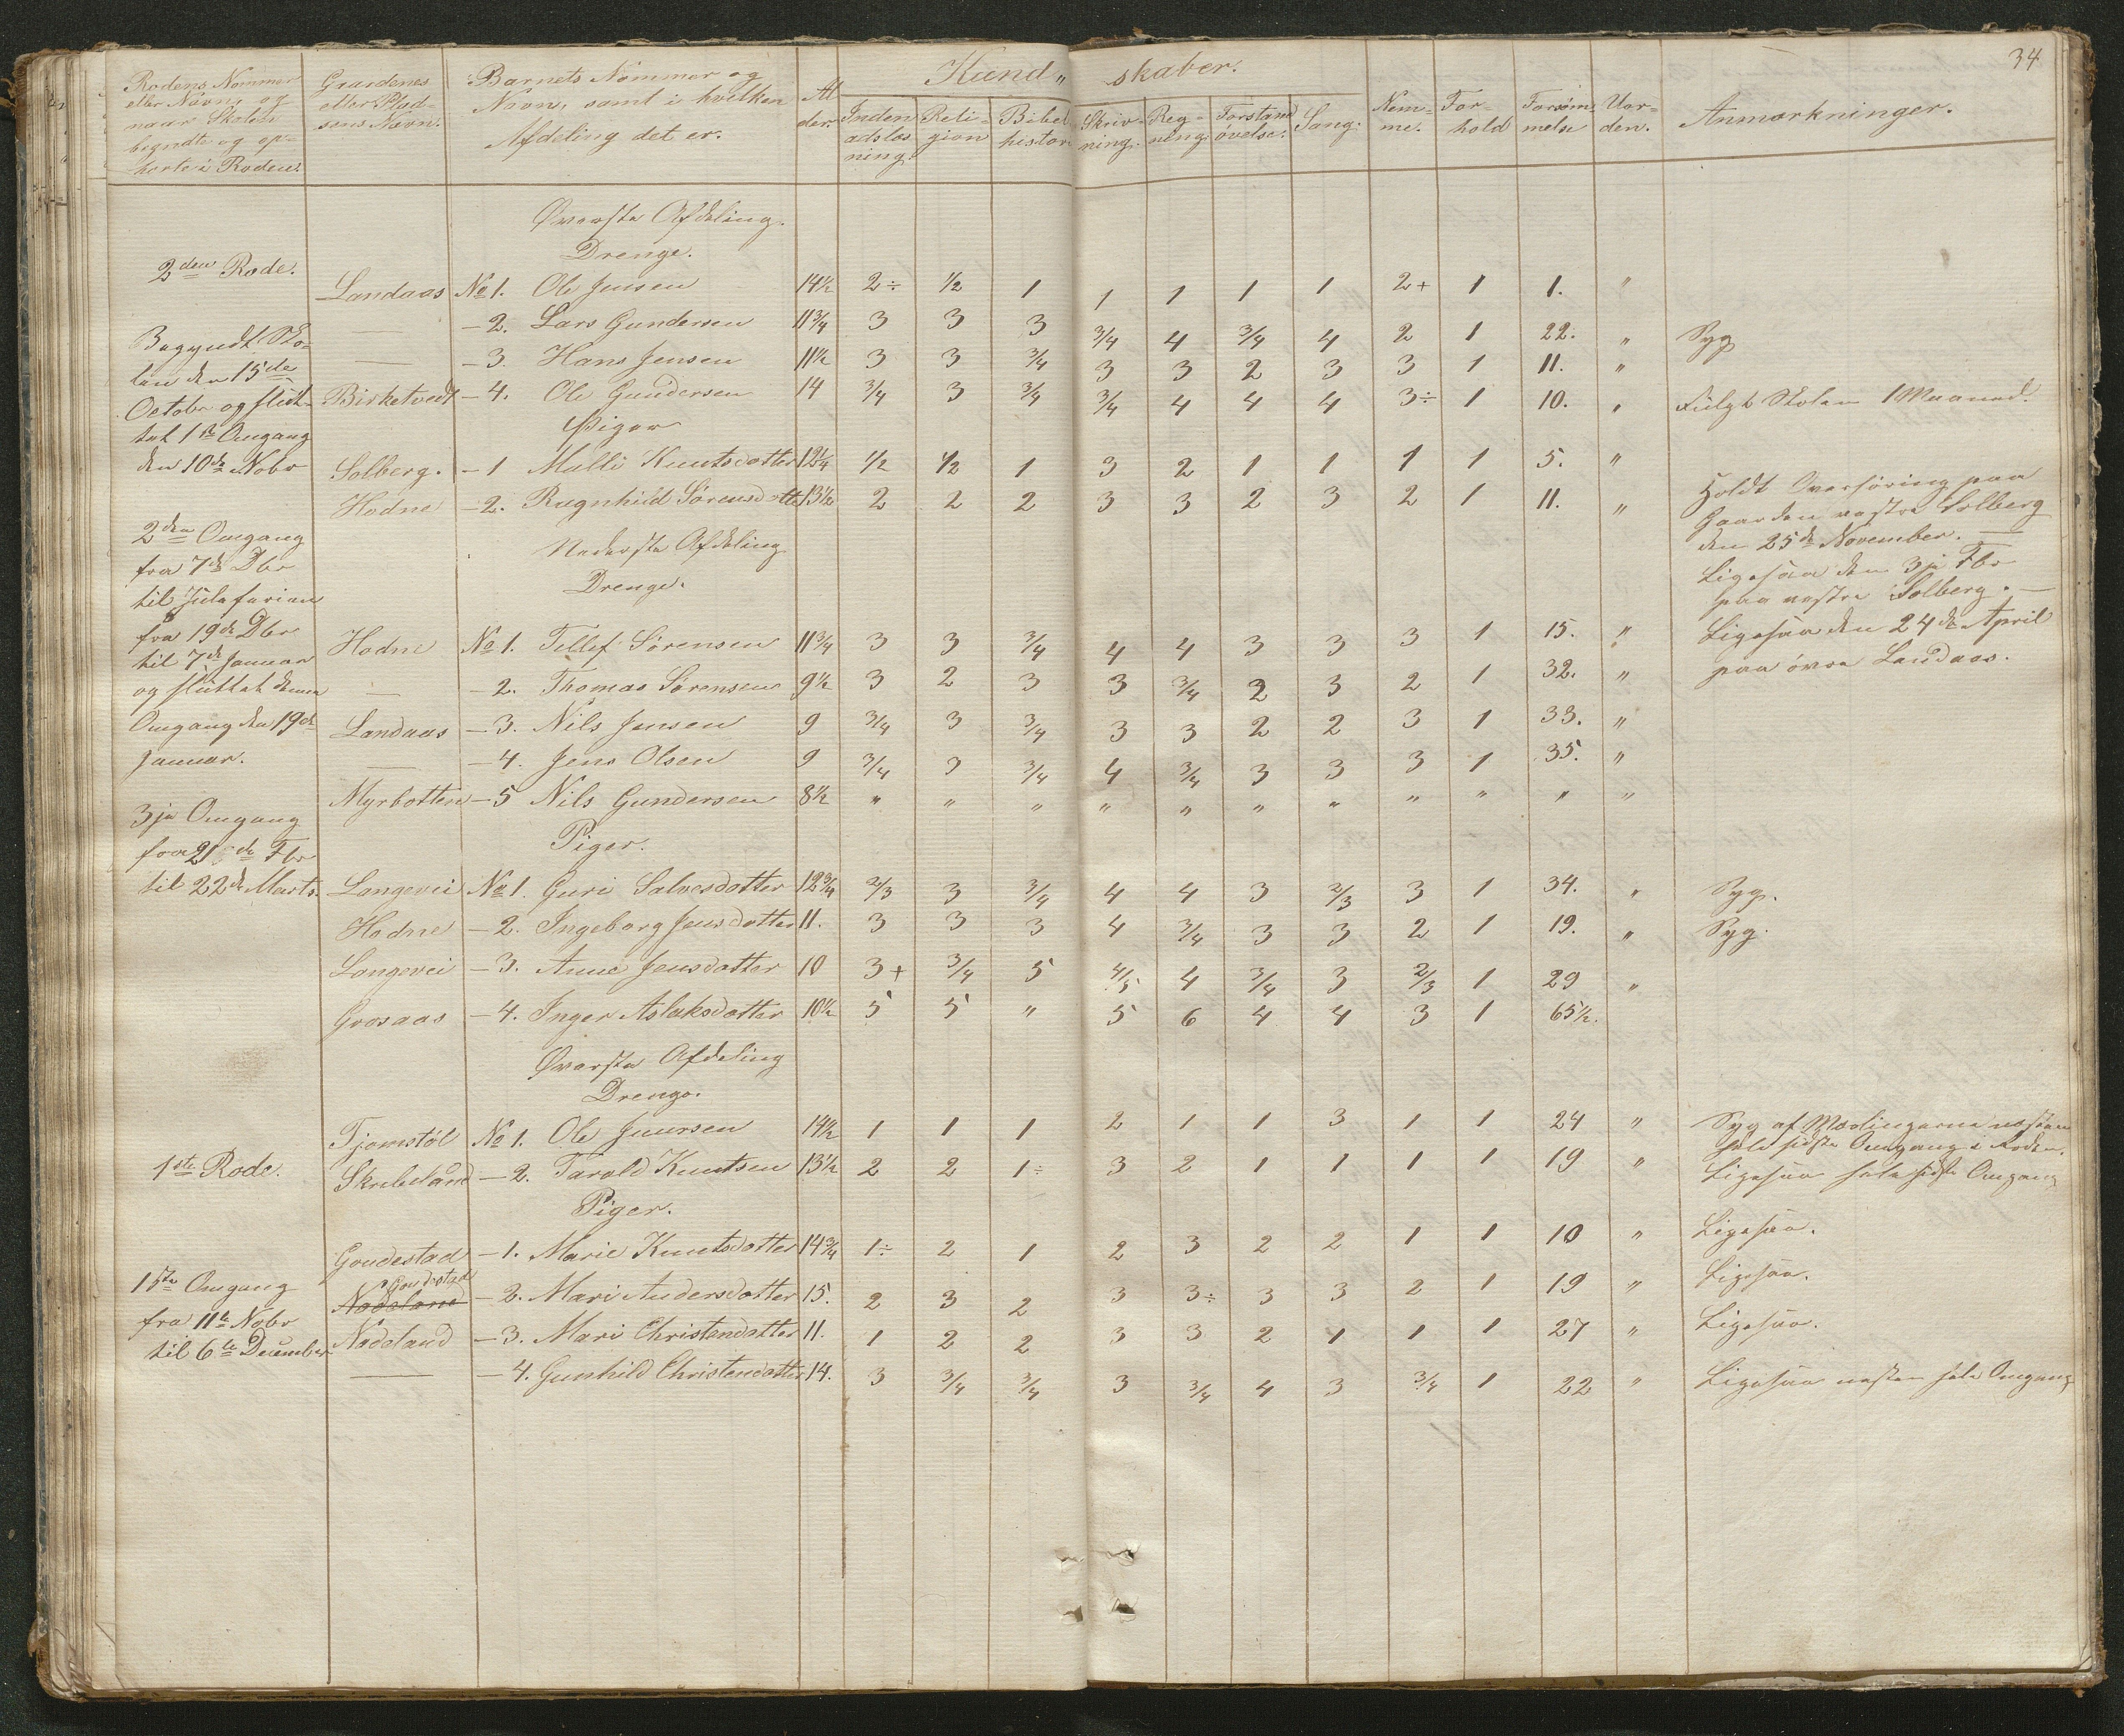 34
Kund„ skaber.
Rodens Nummer
eller Navn, og
naar Skolen
begyndte og op-
hørte i Roden.
Gaardenes
eller Plad-
sens Navn.
Barnets Nummer og
Navn, samt i hvilken
Afdeling det er.
Al-
der.
Inden-
adslæs
ning.
Reli-
gion
Bibel
histor.
Skriv-
ning.
Reg-
ning.
Forstand
øvelse.
Sang.
Nem-
me.
For-
hold
Forsøm-
melse
Uor-
den.
Anmærkninger.
Øverste Afdeling.
Drenge.
2den Rode.
Landaas No 1. Ole Jensen 14½ 2÷ ½ 1 1 1 1 1 2+ 1 1. „
— - 2. Lars Gundersen 11¾ 3 3 3 ¾ 4 ¾ 4 2 1 22. „ Syg
— - 3. Hans Jensen 11½ 3 3 ¾ 3 3 2 3 3 1 11. „
Birketvedt - 4. Ole Gundersen 14 ¾ 3 ¾ ¾ 4 4 4 3÷ 1 10. „ Fulgt Skolen 1 Maaned.
Begyndt Sko-
len den 15de
October og slut-
tet 1ste Omgang
den 10de Nobr
Piger
Solberg. - 1 Malli Knutsdatter 12¼ ½ ½ 1 3 2 1 1 1 1 5. „
Hodne - 2. Ragnhild Sørensdatter 13½ 2 2 2 3 3 2 3 2 1 11. „
Holdt Overhøring paa
Gaarden vestre Solberg
den 25de November. —
Ligesaa den 3je Fbr
paa vestre Solberg. —
Ligesaa den 24de April
paa øvre Landaas.
2den Omgang
fra 7de Dbr
til Juleferien
fra 19de Dbr
til 7de Januar
og sluttet denne
Omgang den 19de
Januar.
Nederste Afdeling
Drenge.
Hodne No 1. Tellef Sørensen 11¾ 3 3 ¾ 4 4 3 3 3 1 15. „
— - 2. Thomas Sørensen 9½ 3 2 3 3 ¾ 2 3 2 1 32. „
Landaas - 3. Nils Jensen 9 ¾ 3 ¾ 3 3 2 2 3 1 33. „
— - 4. Jens Olsen 9 ¾ 3 ¾ 4 ¾ 3 3 3 1 35. „
Myrbotten - 5 Nils Gundersen 8½ „ „ „ „ „ „ „ „ „ „ „
3je Omgang
fra 21de Fbr
til 22de Marts.
Piger.
Langevei No 1. Guri Salvesdatter 12¾ 2/3 3 ¾ 4 4 3 2/3 3 1 34. „ Syg.
Hodne - 2. Ingeborg Jensdatter 11. 3 3 3 4 ¾ 3 3 2 1 19. „ Syg.
Langevei - 3. Anne Jensdatter 10 3+ ¾ 5 4/5 4 ¾ 3 2/3 1 29 „
Grosaas - 4. Inger Aslaksdatter 10½ 5 5 „ 5 6 4 4 3 1 65½.
Øverste Afdeling
Drenge.
1ste Rode.
Tjomstøl No 1. Ole 14½ 1 1 1 2 1 1 3 1 1 24 „ Syg af Mæslingerne næsten
hele sidste Omgang i Roden.
Skribeland - 2. Tarald Knutsen 13½ 2 2 1÷ 3 2 1 1 1 1 19 „ Ligesaa hele sidste Omgang
Piger.
Goudestad - 1. Marie Knutsdatter 14¾ 1÷ 2 1 2 3 2 2 1 1 10 „ Ligesaa.
Goudestad
Nødeland - 2. Mari Andersdatter 15. 2 3 2 3 3÷ 3 3 2 1 19 „ Ligesaa.
Nødeland - 3. Mari Christendatter 11. 1 2 2 3 3 2 1 1 1 27 „ Ligesaa.
— - 4. Gunhild Christendatter 14. 3 ¾ ¾ 3 ¾ 4 3 ¾ 1 22 „ Ligesaa næsten hele Omgang
1ste Omgang
fra 11te Nobr
til 6te December